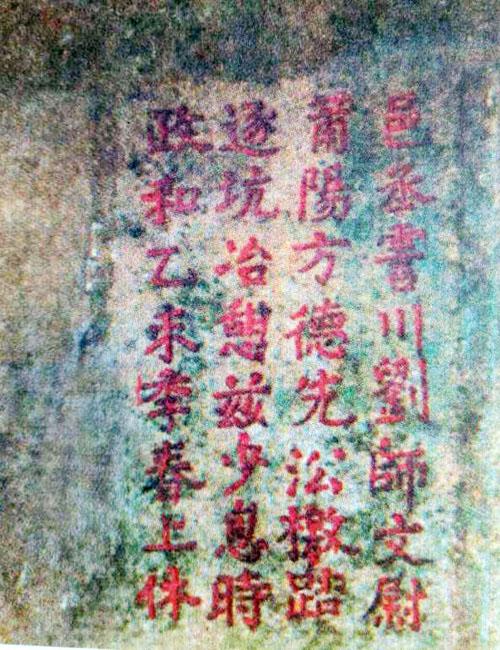 邑丞霅川劉師文尉
莆陽方德先㳂檄踏
遂坑冶憩茲少息時
政和乙未季春上休